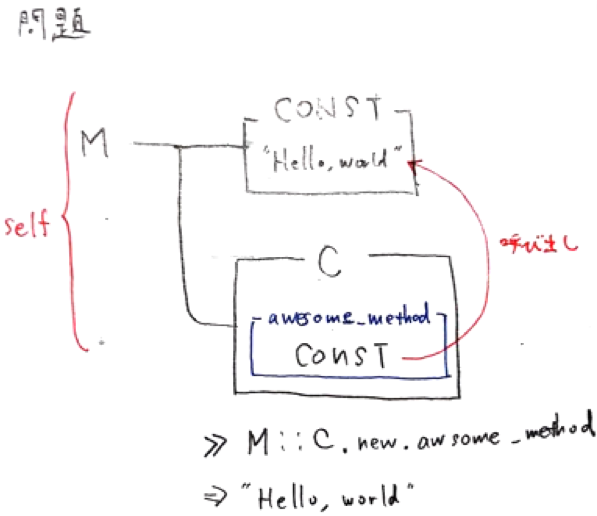 問題
CONST
M
"Hello, world"
self
呼び出し
C
awesome_method
CONST
>> M::C.new.awsome_method
⇒ "Hello, world"